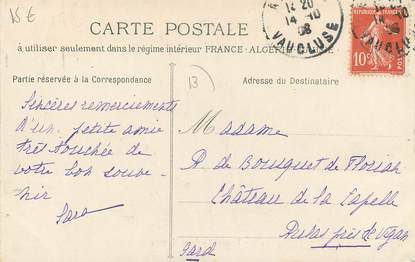 15 €
CARTE POSTALE
à utiliser seulement dans le régime intérieur FRANCE - ALGÉRIE
14 20
14-10
08
VAUCLUSE
10
POSTES
Partie réservée à la Correspondance
13
Adresse du Destinataire
Sincères remerciements
d'une petite amie
très touchée de
votre bon souve-
nir
Sara
Madame
R. de Bousquet de Florian
Château de la Capelle
Aulas près de Vigan
Gard